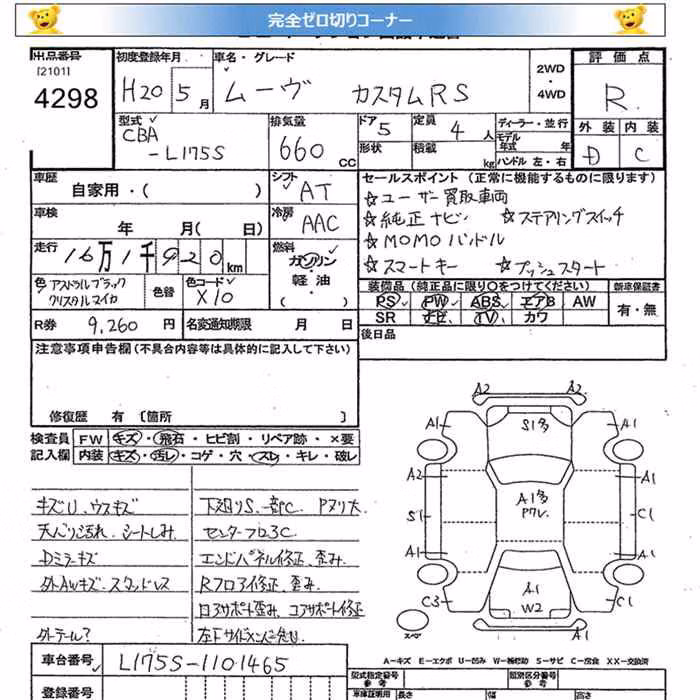 完全ゼロ切りコーナー
出品番号
[2101]
4298
初度登録年月
H20 5月
車名・グレード
ムーヴ カスタムRS
2WD
・
4WD
評価点
R
外装 内装
D C
型式
CBA
-L175S
排気量
660 cc
ドア 5
形状
定員 4 人
積載 kg
ディーラー・並行
モデル年式 年
ハンドル 左・右
車歴
自家用・( )
シフト
AT
車検
年 月( 日)
冷房
AAC
走行
16万1千920km
燃料
ガソリン
・
軽油
・( )
色
アストラルブラック
クリスタルマイカ
色替
色コード
X10
R券 9,260 円
名変通知期限 月 日
セールスポイント (正常に機能するものに限ります)
☆ユーザー買取車両
☆純正ナビ ☆ステアリングスイッチ
☆MOMOハンドル
☆スマートキー ☆プッシュスタート
装備品 (純正品に限り○をつけてください)
新車保証書
PS PW ABS エアB AW
SR ナビ TV カワ
有・無
後日品
注意事項申告欄 (不具合内容等は具体的に記入して下さい)
修復歴 有 [箇所 ]
検査員
記入欄
FW キズ・飛石・ヒビ割・リペア跡・×要
内装 キズ・汚レ・コゲ・穴・スレ・キレ・破レ
キズU ウスキズ
天バリ汚れ、シートしみ
Dミラーキズ
外AWキズ・スタッドレス
外テール?
下廻りS、一部C Pヌリ大
センターフロアC
エンドパネル修正、歪み
Rフロア修正、歪み
コアサポート修正
A2
A1 S1多 A1
A2 A1
A1多
Pワレ
S1 C1
A1 A1
A1
W2
C3 C1
スペア
A2
A-キズ E-エクボ U-凹み W-補修跡 S-サビ C-腐食 XX-交換済
車台番号 L175S-1101465
登録番号
型式指定番号
類別区分番号
参考
車検証明用
長さ 幅 高さ